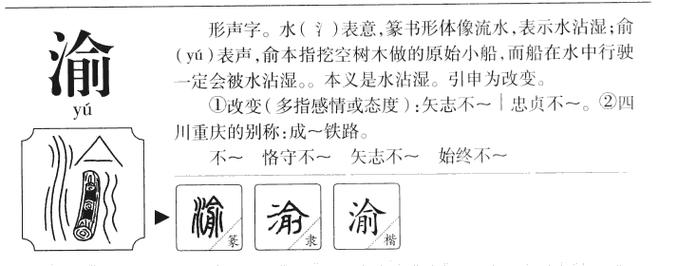 渝
yú
形声字。水(氵)表意,篆书形体像流水,表示水沾湿;俞
(yú)表声,俞本指挖空树木做的原始小船,而船在水中行驶
一定会被水沾湿。。本义是水沾湿。引申为改变。
①改变(多指感情或态度):矢志不～│忠贞不～。②四
川重庆的别称:成～铁路。
不～ 恪守不～ 矢志不～ 始终不～
渝 篆 渝 隶 渝 楷